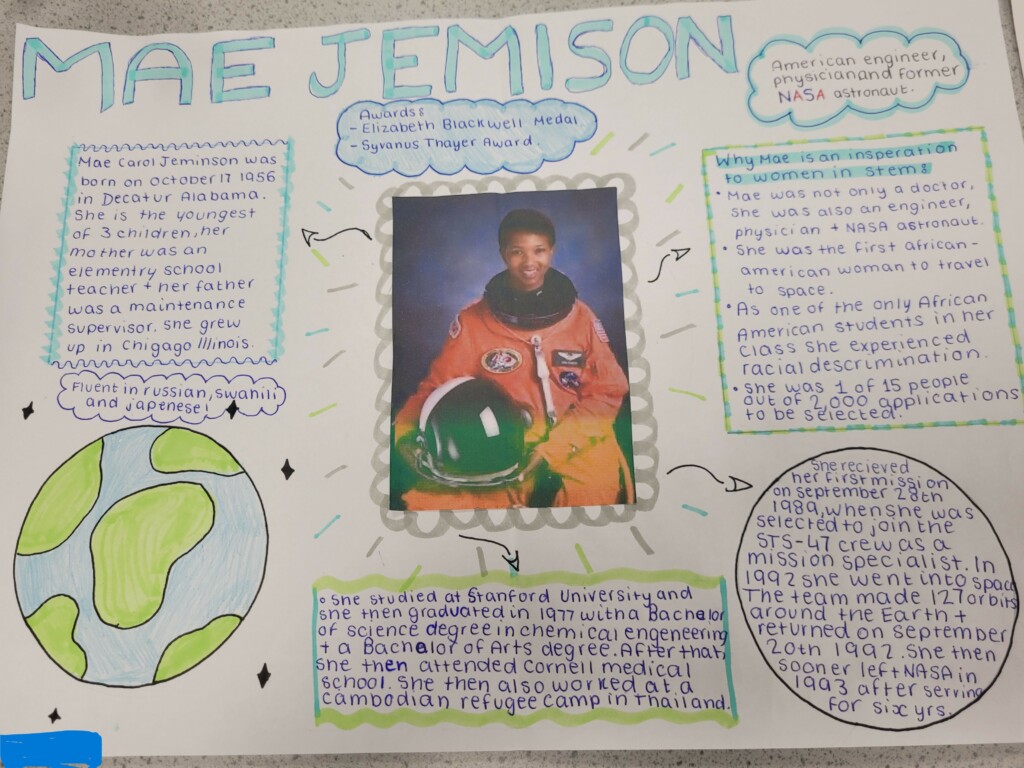 MAE JEMISON
American engineer,
physician and former
NASA astronaut.
Awards:
- Elizabeth Blackwell Medal
- Syvanus Thayer Award.
Mae Carol Jeminson was
born on October 17 1956
in Decatur Alabama.
She is the youngest
of 3 children, her
mother was an
elementry school
teacher + her father
was a maintenance
supervisor. she grew
up in Chigago Illinois.
Fluent in russian, swahili
and japenese!
Why Mae is an insperation
to women in stem:
• Mae was not only a doctor,
she was also an engineer,
physician + NASA astronaut.
• She was the first african-
american woman to travel
to space.
• As one of the only African
American students in her
class she experienced
racial descrimination.
• She was 1 of 15 people
out of 2,000 applications
to be selected.
She recieved
her first mission
on september 28th
1989, when she was
selected to join the
STS-47 crew as a
mission specialist. In
1992 she went into space
The team made 127 orbits
around the Earth +
returned on september
20th 1992. She then
sooner left NASA in
1993 after serving
for six yrs.
• She studied at Stanford University and
she then graduated in 1977 with a Bachelor
of science degree in chemical engeneering
+ a Bachelor of Arts degree. After that,
she then attended Cornell medical
school. She then also worked at a
cambodian refugee camp in Thailand.